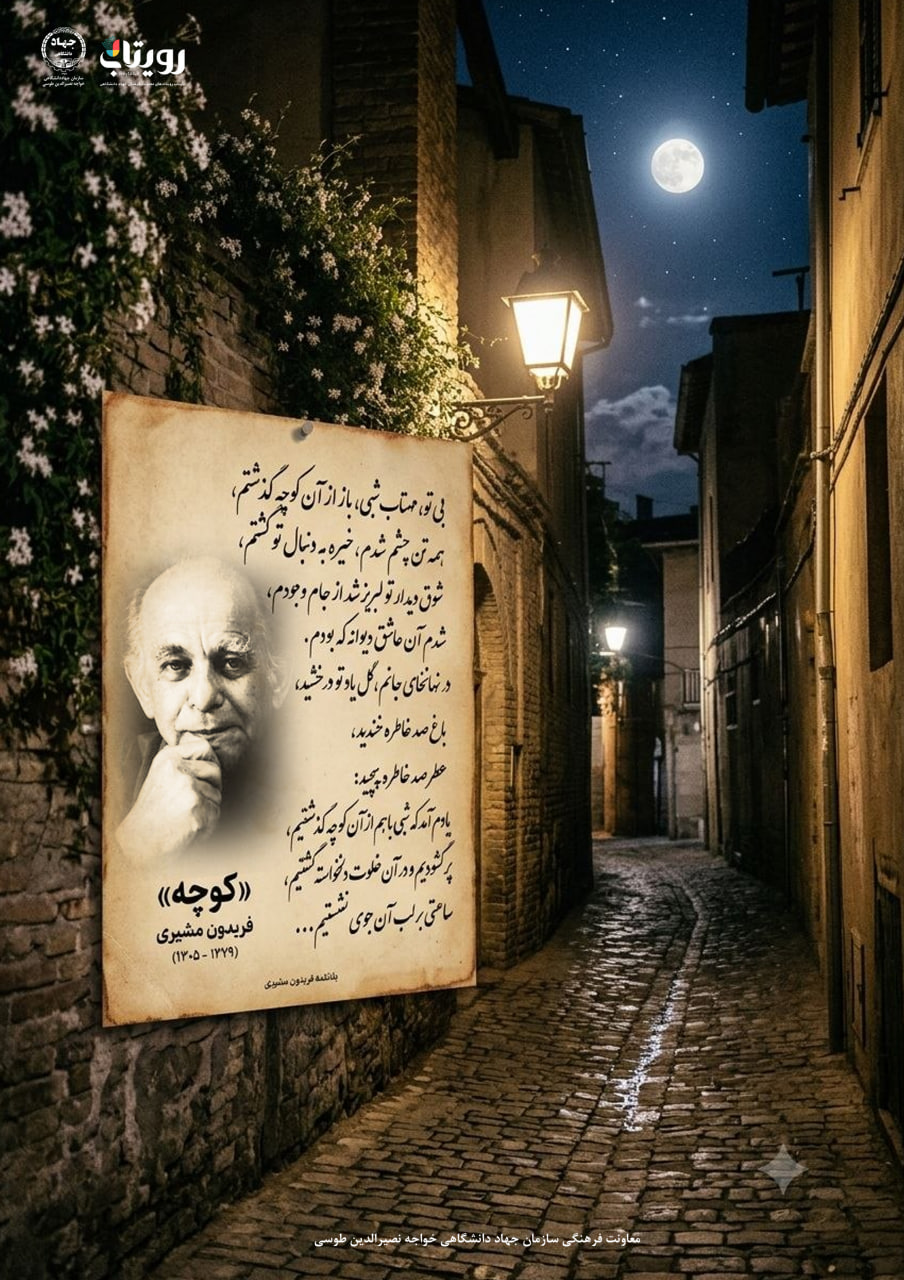 جهاد
دانشگاهی
سازمان جهاددانشگاهی
خواجه نصیرالدین طوسی
رویتاب
بی تو، مهتاب شبی، باز از آن کوچه گذشتم،
همه تن چشم شدم، خیره به دنبال تو گشتم،
شوق دیدار تو لبریز شد از جام وجودم،
شدم آن عاشق دیوانه که بودم.
در نهانخانهٔ جانم، گل یاد تو درخشید،
باغ صد خاطره خندید،
عطر صد خاطره پیچید:
یادم آمد که شبی باهم از آن کوچه گذشتیم،
پر گشودیم و در آن خلوت دلخواسته گشتیم،
ساعتی بر لب آن جوی نشستیم...
«کوچه»
فریدون مشیری
(۱۳۰۵ - ۱۳۷۹)
فریدون مشیری
معاونت فرهنگی سازمان جهاد دانشگاهی خواجه نصیرالدین طوسی